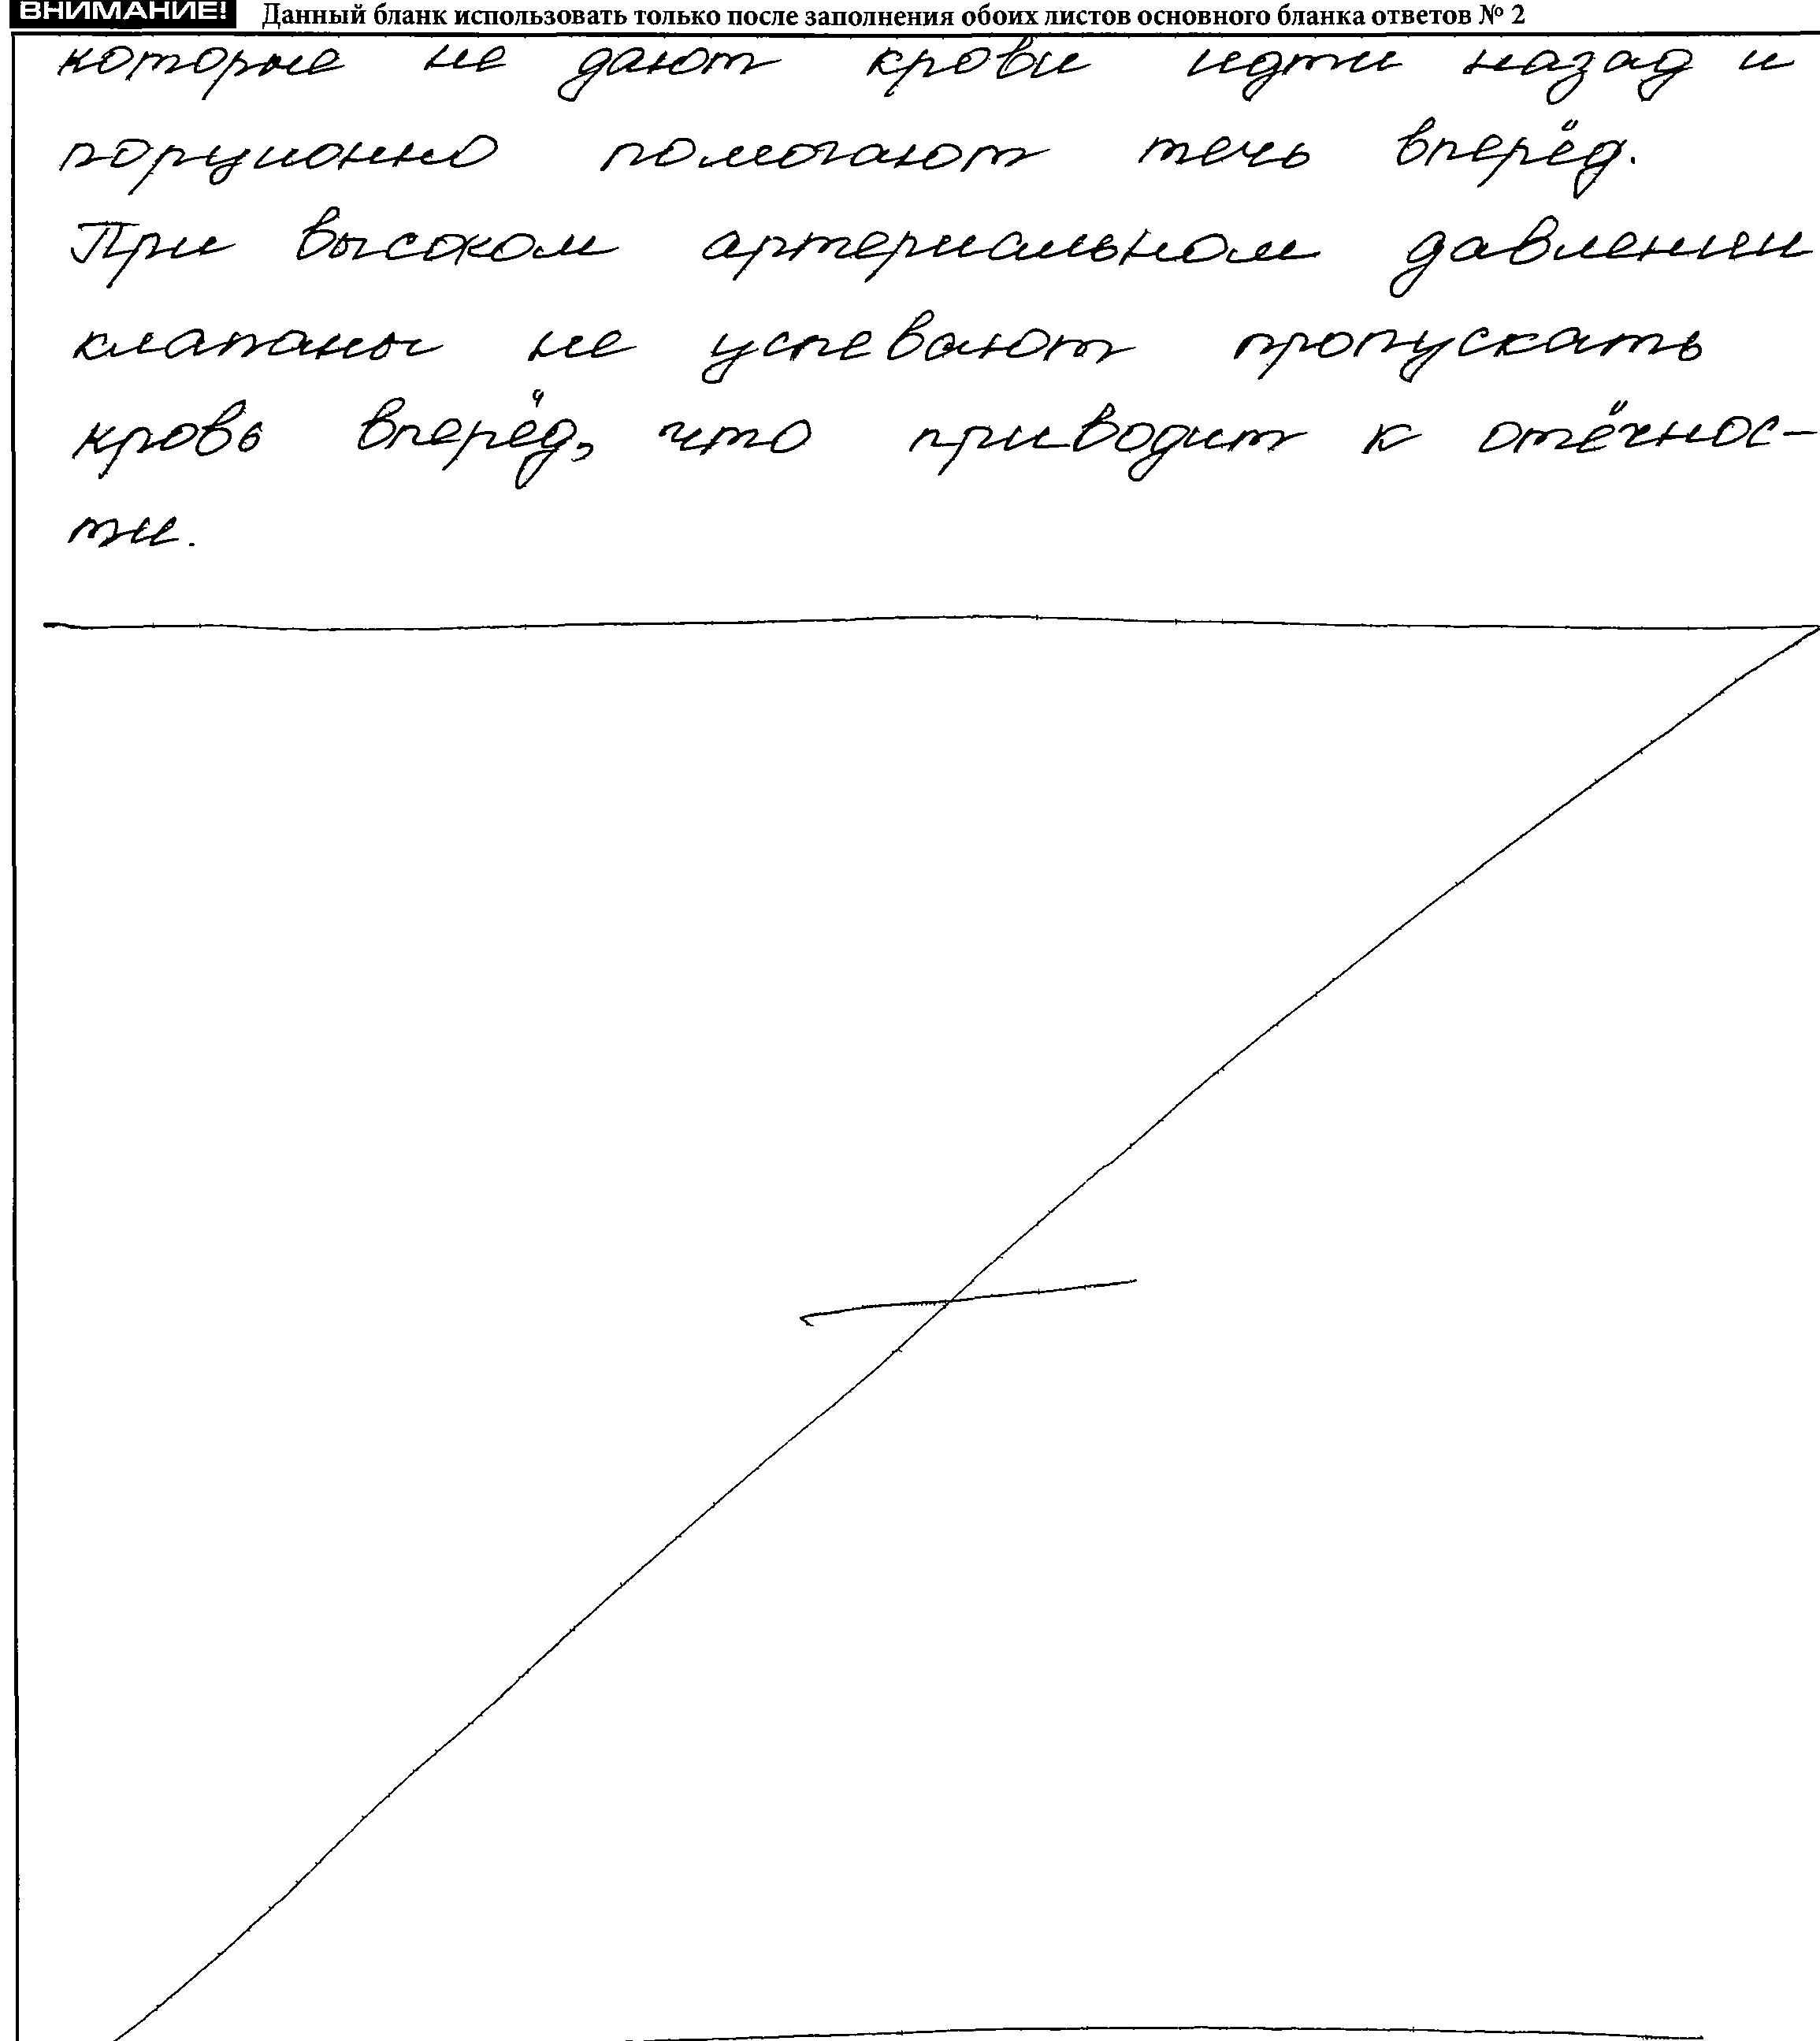 ВНИМАНИЕ! Данный бланк использовать только после заполнения обоих листов основного бланка ответов № 2
которые не дают крови идти назад и
порционно помогают течь вперёд.
При высоком артериальном давлении
клапаны не успевают пропускать
кровь вперёд, что приводит к отёчнос-
ти.